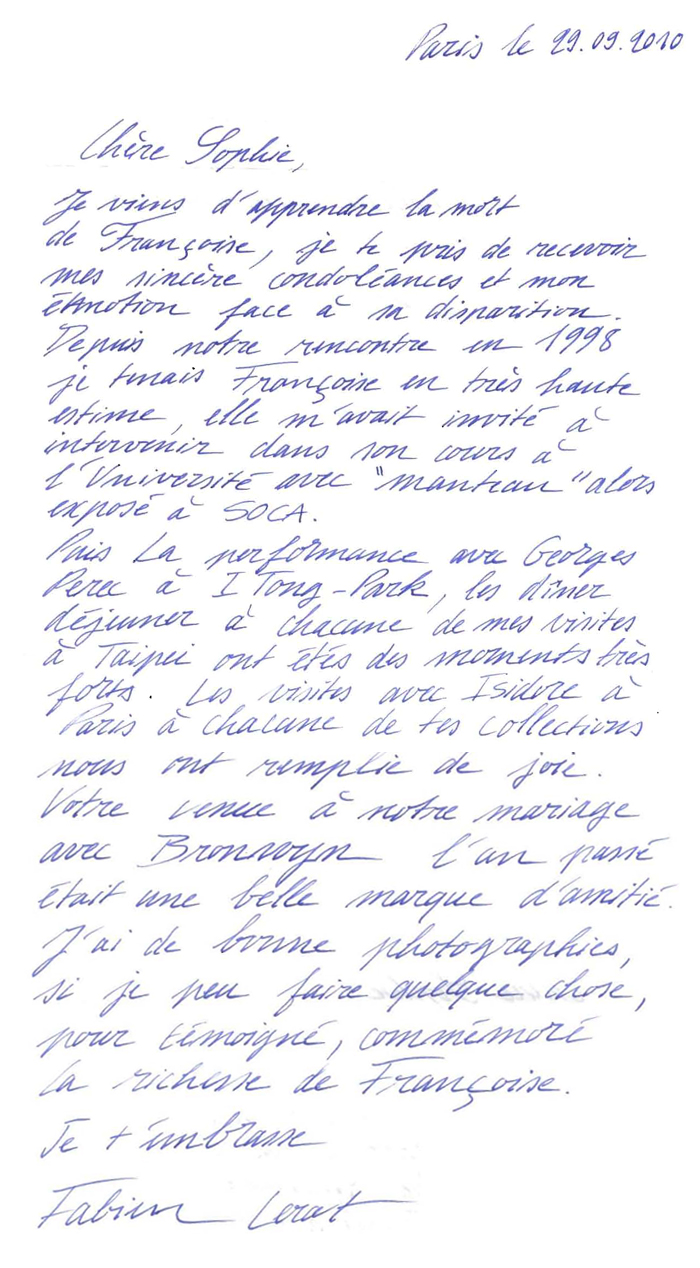 Paris le 29.09.2010
Chère Sophie,
Je viens d'apprendre la mort
de Françoise, je te pris de recevoir
mes sincère condoléances et mon
émotion face à sa disparition.
Depuis notre rencontre en 1998
je tenais Françoise en très haute
estime, elle m'avait invité à
intervenir dans son cours à
l'Université avec "manteau" alors
exposé à SOCA.
Puis La performance avec Georges
Perec à I Tong-Park, les dîner
déjeuner à chacune de mes visites
à Taipei ont étés des moments très
forts. Les visites avec Isidore à
Paris à chacune de tes collections
nous ont remplie de joie.
Votre venue à notre mariage
avec Bronwyn l'an passé
était une belle marque d'amitié.
J'ai de bonne photographies,
si je peu faire quelque chose,
pour témoigné, commémoré
la richesse de Françoise.
Je t'embrasse
Fabien Lerat